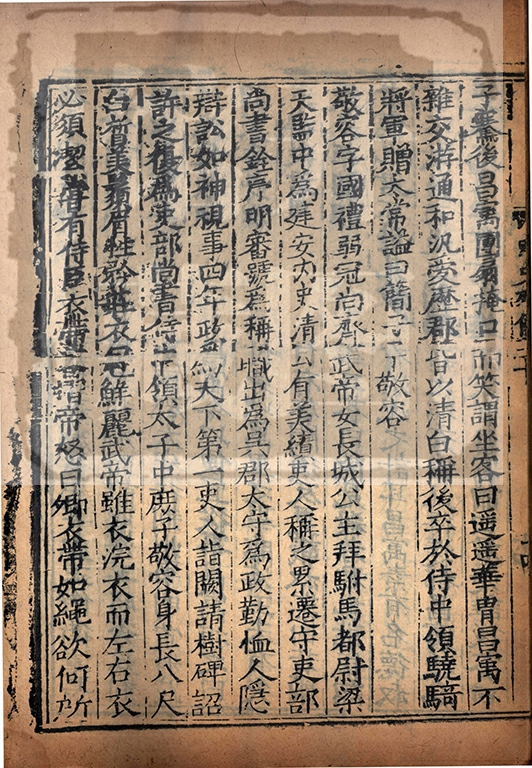 子後昌㝢團扇掩口而笑謂坐客曰遥遥華胄昌㝢不
雜交游通和汎愛歷郡皆以清白稱後卒於侍中領驍騎
將軍贈太常謚曰簡子子敬容
敬容字國禮弱冠尚齊武帝女長城公主拜駙馬都尉梁
天監中爲建安内史清公有美績吏人稱之累遷守吏部
尚書銓序明審號爲稱職出爲吳郡太守爲政勤恤人隱
辯訟如神視事四年政爲天下第一吏人詣闕請樹碑詔
許之復爲吏部尚書侍中領太子中庶子敬容身長八尺
白晳美鬚眉性矜莊衣冠鮮麗武帝雖衣浣衣而左右衣
必須潔嘗有侍臣衣帶卷摺帝怒曰卿衣帶如繩欲何所